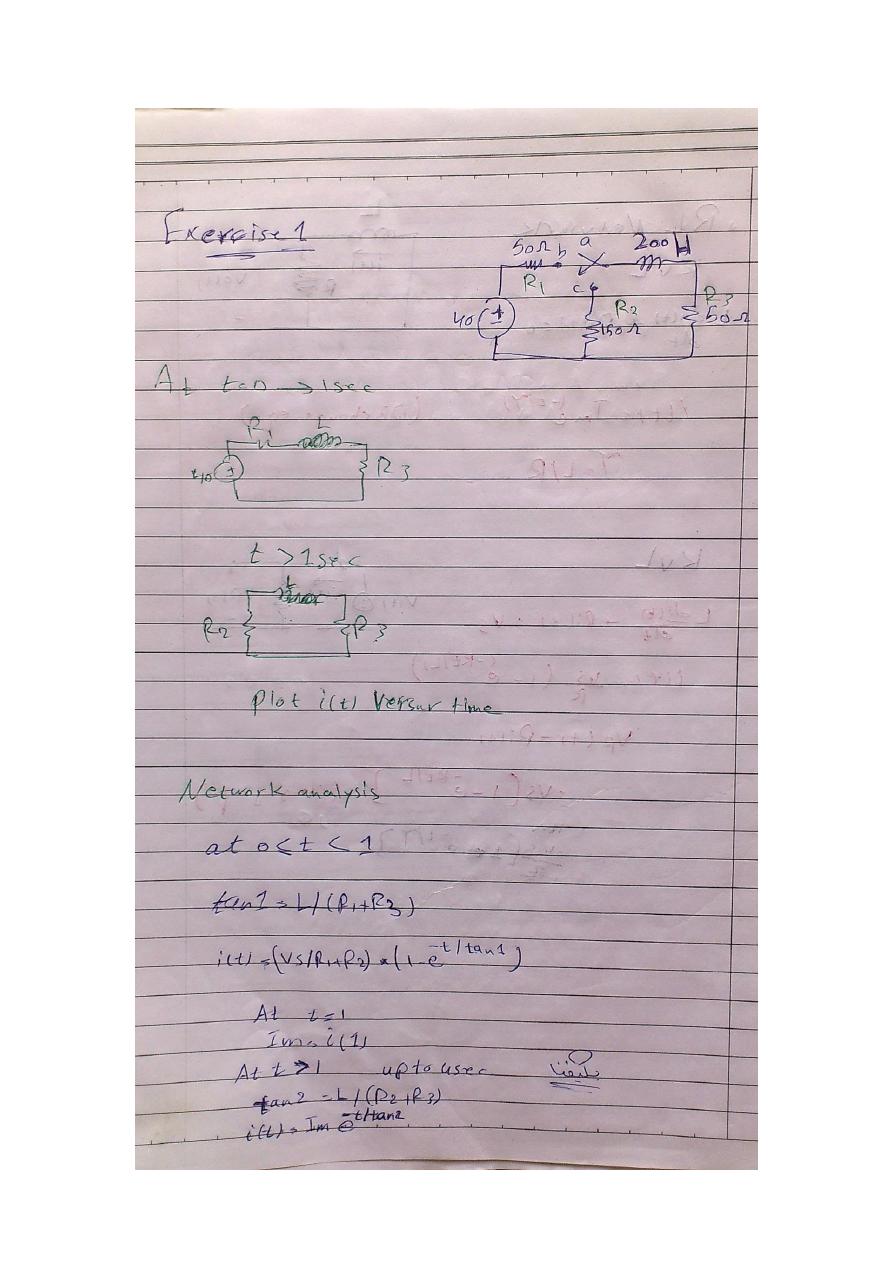 Exercise 1
50Ω b a 200H
R1 c R2 R3
40 150Ω 50Ω
At t=0 → 1sec
R1 L
40 R3
t > 1sec
L
R2 R3
plot i(t) Versur time
Network analysis
at 0<t<1
tan1 = L/(R1+R3)
i(t) = (VS/R1+R2) * (1-e^-t/tan1)
At t=1
Im = i(1)
At t>1 up to 4sec
tan2 = L/(R2+R3)
i(t) = Im e^-t/tan2